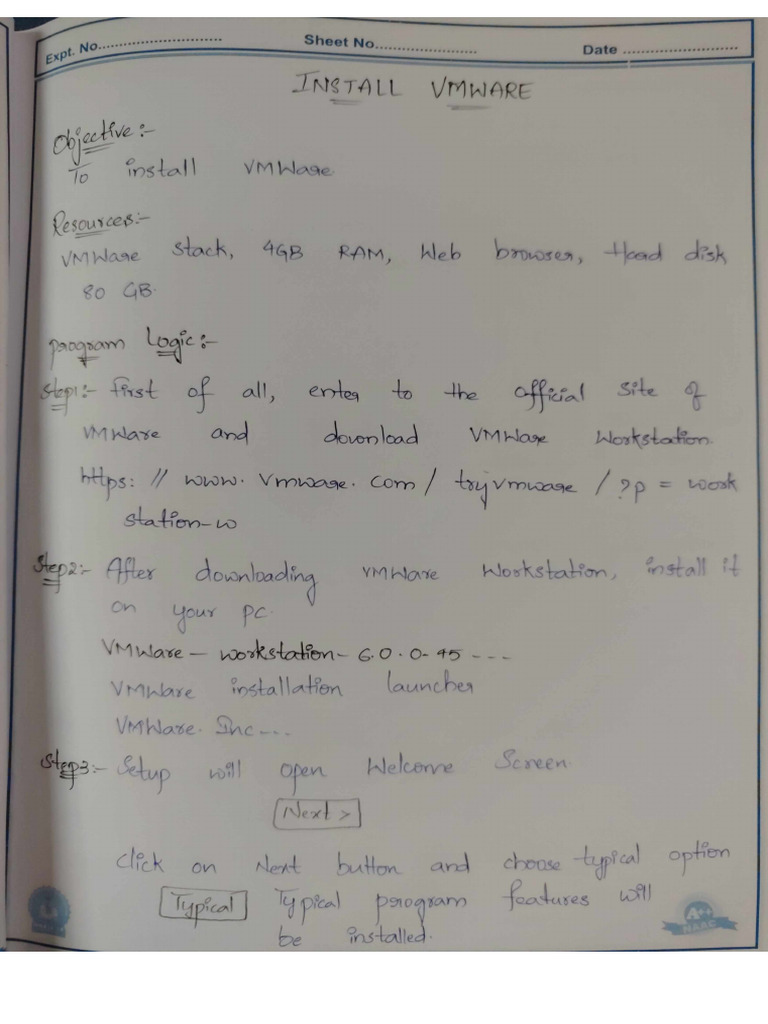 Expt. No.............................. Sheet No......................... Date ............................
INSTALL VMWARE
Objective:-
To install VMWare
Resources:-
VMWare stack, 4GB RAM, Web browser, Hard disk
80 GB.
program Logic:-
Step1:- first of all, enter to the official site of
VMWare and download VMWare Workstation.
https: // www. vmware. com / tryvmware / ?p = work
station-w
Step2:- After downloading VMWare Workstation, install it
on your pc.
VMWare - workstation - 6.0.0-45 ---
VMWare installation launcher
VMWare. Inc ---
Step3:- Setup will open Welcome Screen.
Next >
click on Next button and choose typical option
Typical Typical program features will
be installed.
A++
NAAC